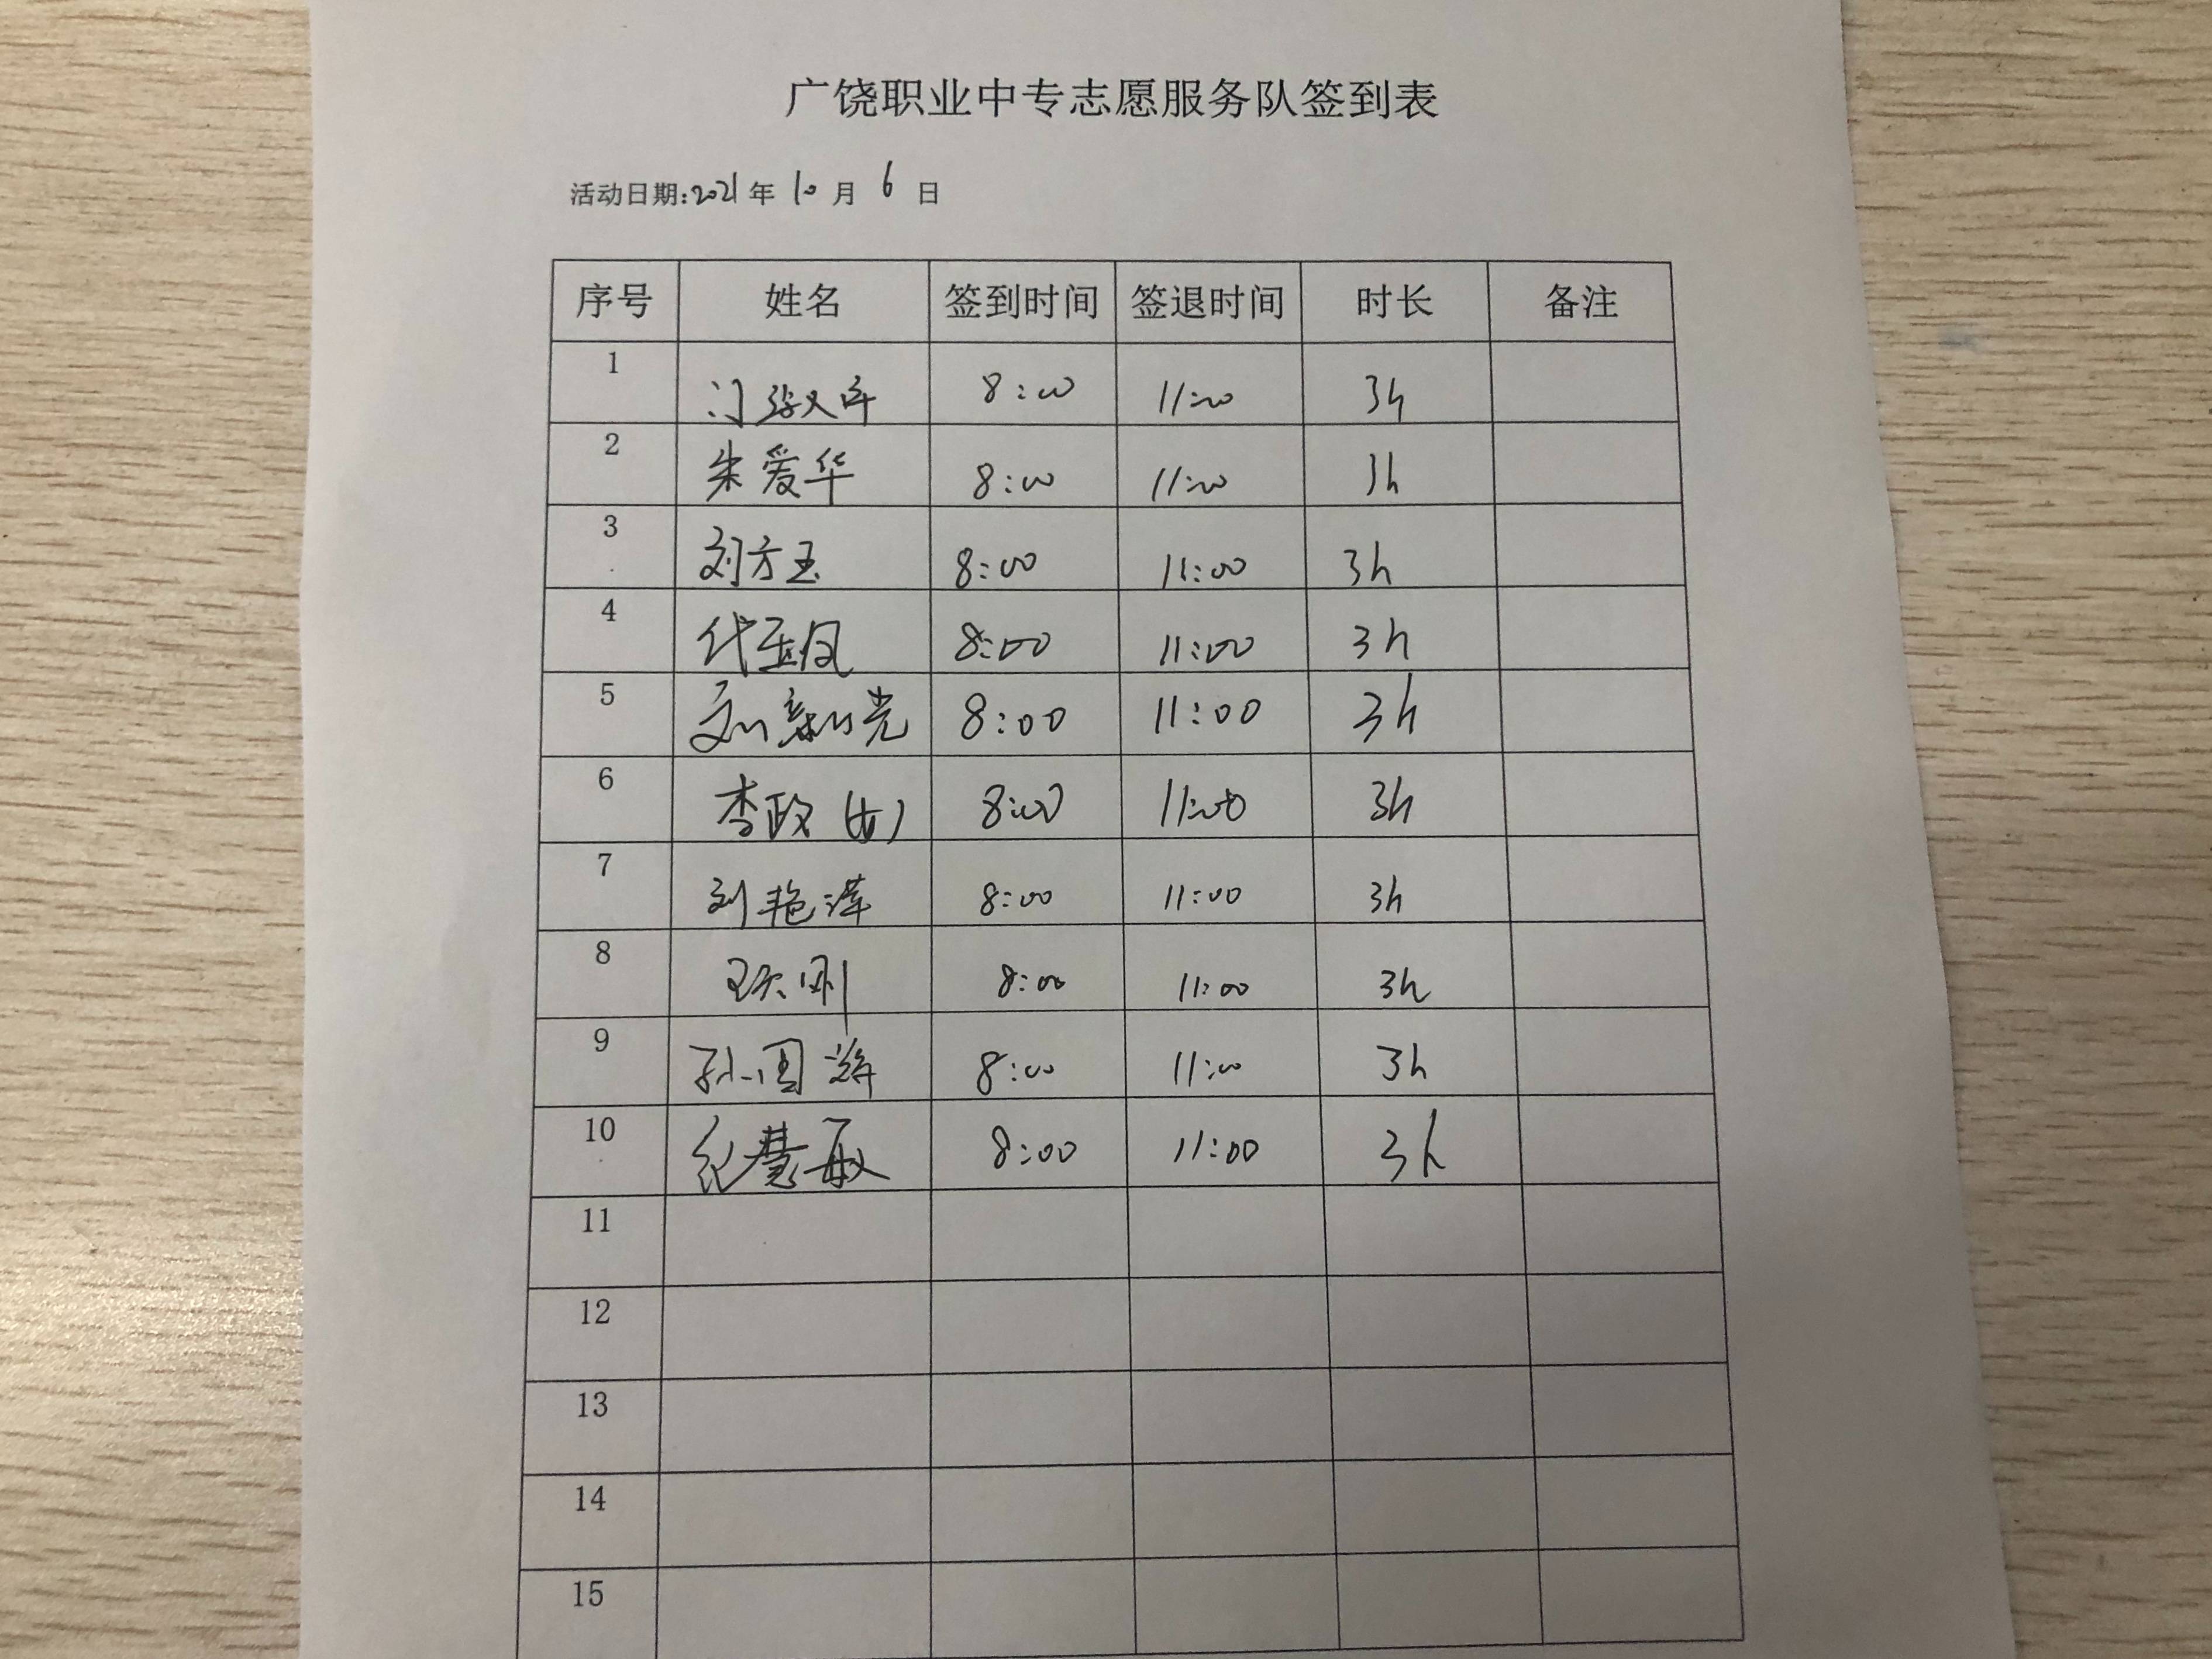 广饶职业中专志愿服务队签到表
活动日期:2021年 10 月 6 日
序号 姓名 签到时间 签退时间 时长 备注
1 8:00 11:00 3h
2 朱爱华 8:00 11:00 3h
3 刘方玉 8:00 11:00 3h
4 代玉凤 8:00 11:00 3h
5 刘新光 8:00 11:00 3h
6 李政(女) 8:00 11:00 3h
7 刘艳萍 8:00 11:00 3h
8 8:00 11:00 3h
9 孙国辉 8:00 11:00 3h
10 纪慧敏 8:00 11:00 3h
11
12
13
14
15